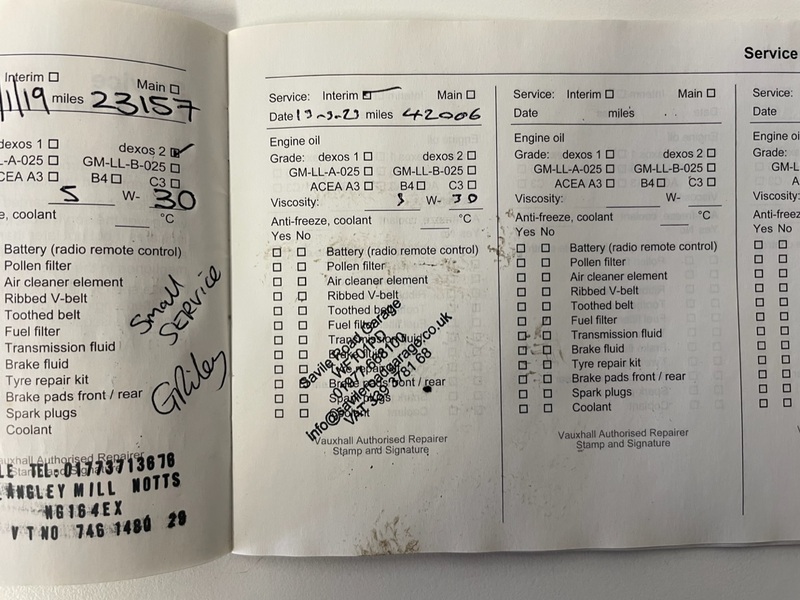 Service
Interim
Main
1/19 miles 23157
dexos 1
dexos 2
L-A-025
GM-LL-B-025
CEA A3
B4
C3
5 W- 30
e, coolant
°C
Battery (radio remote control)
Pollen filter
Air cleaner element
Ribbed V-belt
Toothed belt
Fuel filter
Transmission fluid
Brake fluid
Tyre repair kit
Brake pads front / rear
Spark plugs
Coolant
Small
SERVICE
GRiley
uxhall Authorised Repairer
Stamp and Signature
LE TEL:01773713676
LANGLEY MILL NOTTS
NG164EX
V T NO 746 1480 29
Service: Interim Main
Date miles 42006
Engine oil
Grade: dexos 1 dexos 2
GM-LL-A-025 GM-LL-B-025
ACEA A3 B4 C3
Viscosity: 5 W- 30
Anti-freeze, coolant °C
Yes No
Battery (radio remote control)
Pollen filter
Air cleaner element
Ribbed V-belt
Toothed belt
Fuel filter
Transmission fluid
Brake fluid
Tyre repair kit
Brake pads front / rear
Spark plugs
Coolant
Savile Road Garage
Info@savileroadgarage.co.uk
Vauxhall Authorised Repairer
Stamp and Signature
Service: Interim Main
Date miles
Engine oil
Grade: dexos 1 dexos 2
GM-LL-A-025 GM-LL-B-025
ACEA A3 B4 C3
Viscosity: W-
Anti-freeze, coolant °C
Yes No
Battery (radio remote control)
Pollen filter
Air cleaner element
Ribbed V-belt
Toothed belt
Fuel filter
Transmission fluid
Brake fluid
Tyre repair kit
Brake pads front / rear
Spark plugs
Coolant
Vauxhall Authorised Repairer
Stamp and Signature
Service:
Date
Engine oi
Grade:
GM-L
A
Viscosity:
Anti-freeze
Yes No